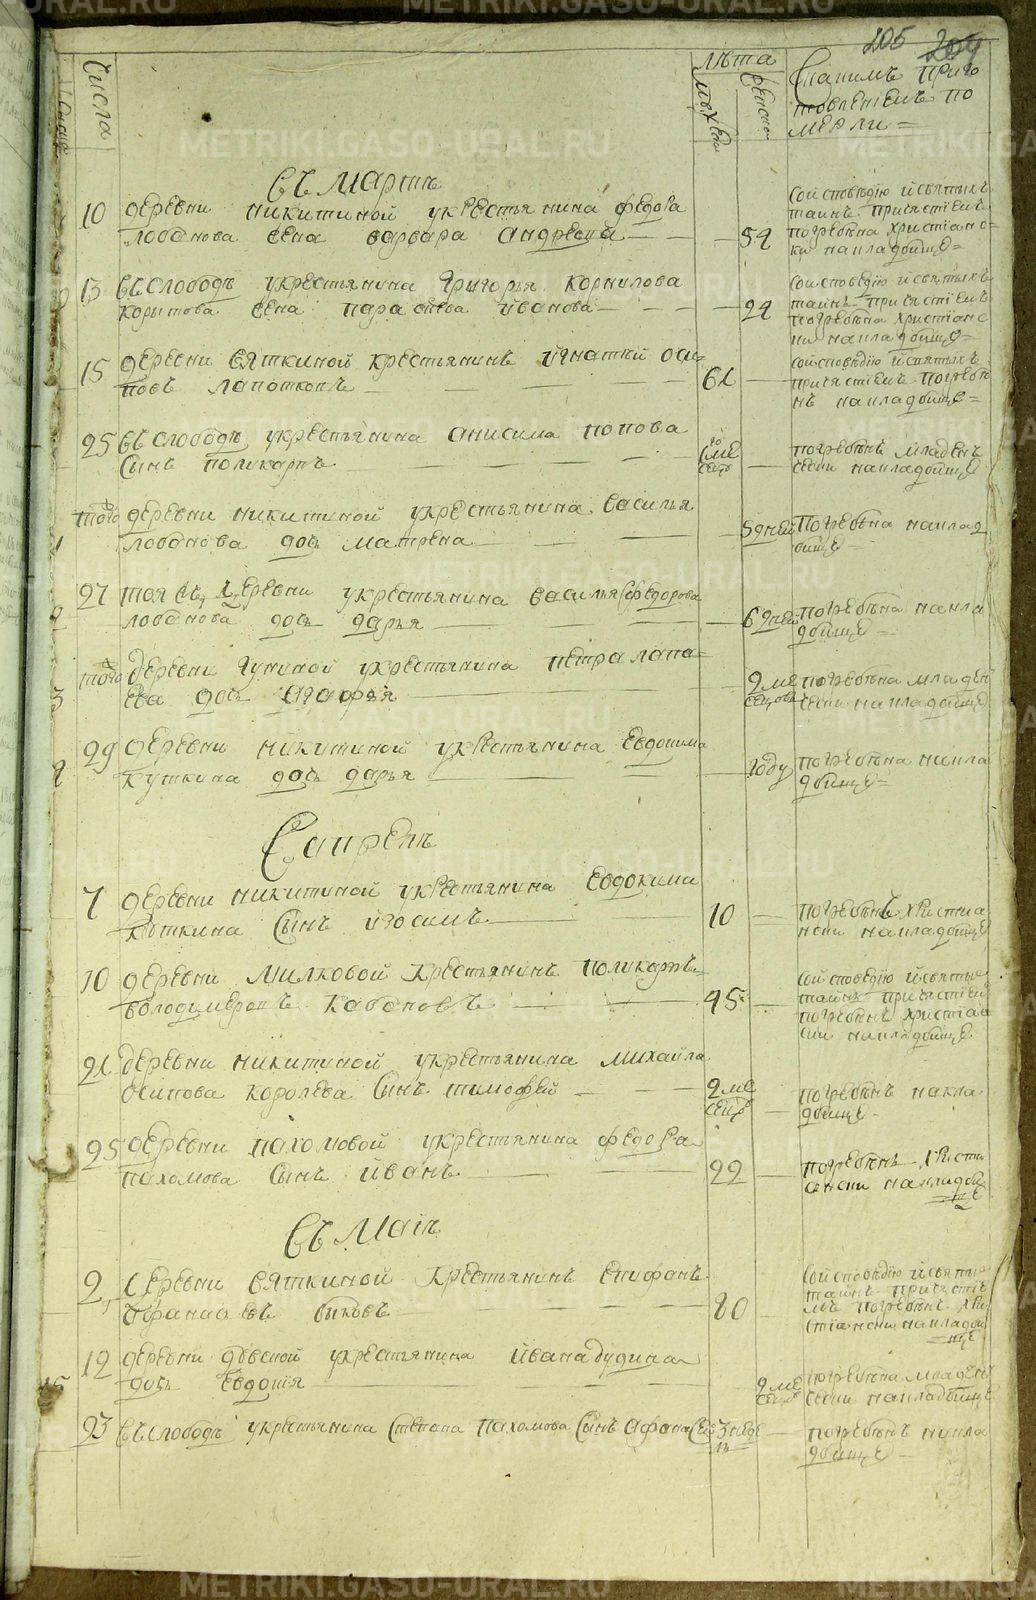 205 204
Числа
лѣта
мужеска
женска
Скакимъ приго
товлениемъ по
мерли =
Въ мартѣ
10 деревни никитиной укрестьянина федора
лобанова жена варвара андреева
54
сои споведию и святыхъ
таинъ причястиемъ
погребена христиано
ки накладбище =
13 въ слободѣ укрестьянина Григорья корнилова
корытова жена парасковья иванова
24
сои споведию и святыхъ
таинъ причястиемъ
погребена христианс
ки накладбище =
15 деревни вяткиной крестьянинъ игнатий оси
повъ лапотковъ
61
сои споведию и святыхъ
причястиемъ погребе
нъ накладбище =
25 въ слободѣ укрестьянина анисима попова
сынъ поликарпъ
погребенъ младен
чески накладбище
того деревни никитиной укрестьянина василья
лобанова дочь матрена
5 дней
погребена наклад
бище =
27 тоя же деревни укрестьянина василья федорова
лобанова дочь дарья
6 дней
погребена накла
дбище =
того деревни Гуниной укрестьянина петра лапа
ева дочь агафья
2 ме
сецовъ
погребена младен
чески накладбище
29 деревни никитиной укрестьянина Евдокима
куткина дочь дарья
году
погребена накла
дбище =
Въ апрелѣ
7 деревни никитиной укрестьянина Евдокима
куткина сынъ изосимъ
10
погребенъ христиа
нски накладбище
10 деревни милковой крестьянинъ поликарпъ
володимеровъ кабановъ
45
сои споведию и святых
таинъ причястием
погребенъ христиан
ски накладбище
21 деревни никитиной укрестьянина михайла
осипова королева сынъ тимофей
2 ме
сецо
погребенъ накла
дбище =
25 деревни пахомовой укрестьянина федора
пахомова сынъ иванъ
22
погребенъ христи
ански накладби
ще
Въ маиѣ
2 деревни вяткиной крестьянинъ епифанъ
афанасьевъ быковъ
80
сои споведию и святых
таинъ причясти
мъ погребенъ хри
стиански накладби
ще
12 деревни дѣвской укрестьянина ивана дудина
дочь евдокия
2 ме
сецо
погребена младен
чески накладбище
23 въ слободѣ укрестьянина степана пахомова сынъ афанасей
3 неде
ль
погребенъ накла
дбище =